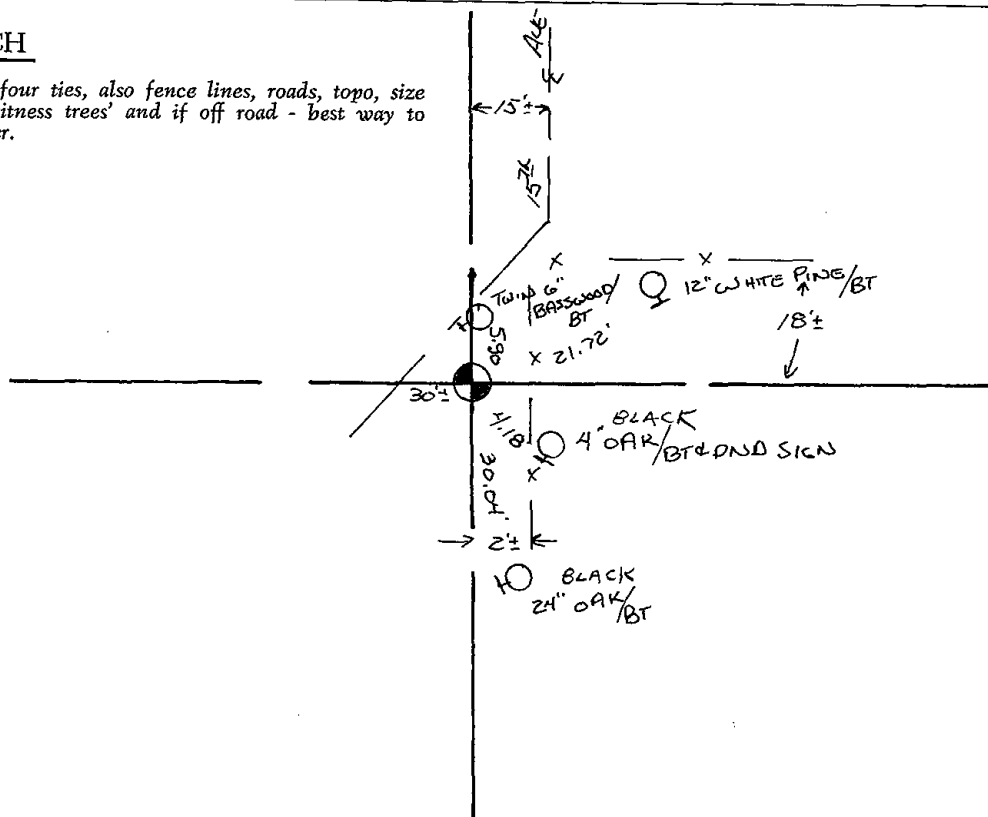 CH
four ties, also fence lines, roads, topo, size
itness trees' and if off road - best way to
r.
AVE
15'±
15TH
X
X
TWIN 6"
BASSWOOD/
BT
12" WHITE PINE/BT
18'±
5.90
X 21.72'
30'±
4.18
BLACK
4" OAK/BT & DND SIGN
X
30.04'
2'±
BLACK
24" OAK/BT